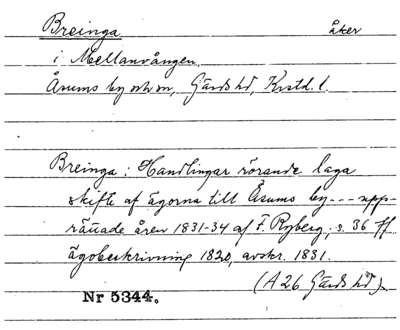 Breinga åker
i Mellanvången.
Åsums by och sn, Gärds hd, Krstd. l.
Breinga: Handlingar rörande laga
skifte af ägorna till Åsums by --- upp-
rättade åren 1831-34 af F. Ryberg, s. 36 ff
ägobeskrivning 1820, avskr. 1831.
(A 26 Gärds hd).
Nr 5344.